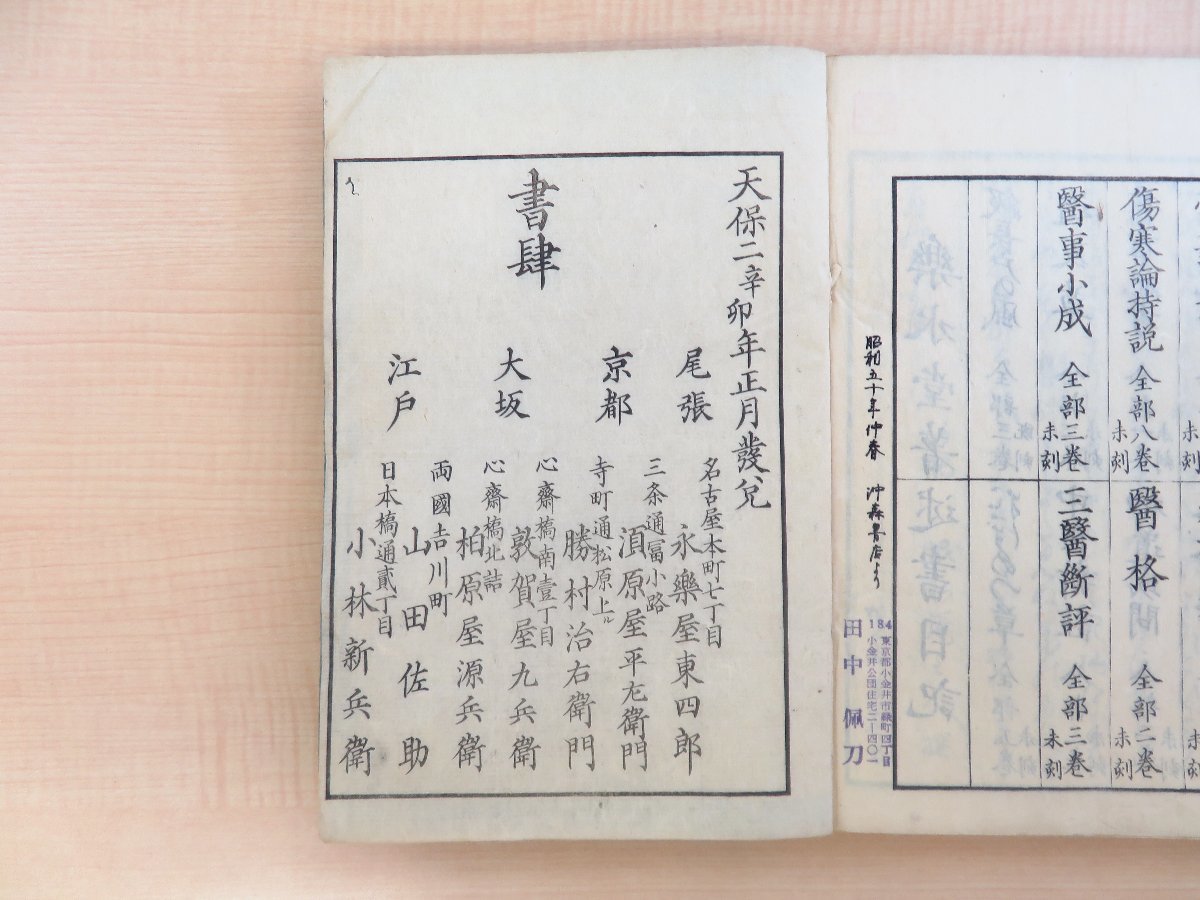 傷寒論持説 全部八巻 未刻
醫格 全部二巻 未刻
醫事小成 全部三巻 未刻
三醫斷評 全部三巻 未刻
昭和五十年仲春 沖森書店より
184 東京都小金井市緑町四丁目
小金井公団住宅二ー四〇一
田中佩刀
天保二辛卯年正月發兌
書肆
尾張 名古屋本町七丁目
永樂屋東四郎
京都 三条通冨小路
須原屋平左衛門
寺町通松原上ル
勝村治右衛門
大坂 心齋橋南壹丁目
敦賀屋九兵衛
心齋橋北詰
柏原屋源兵衛
江戸 両國吉川町
山田佐助
日本橋通貳丁目
小林新兵衛